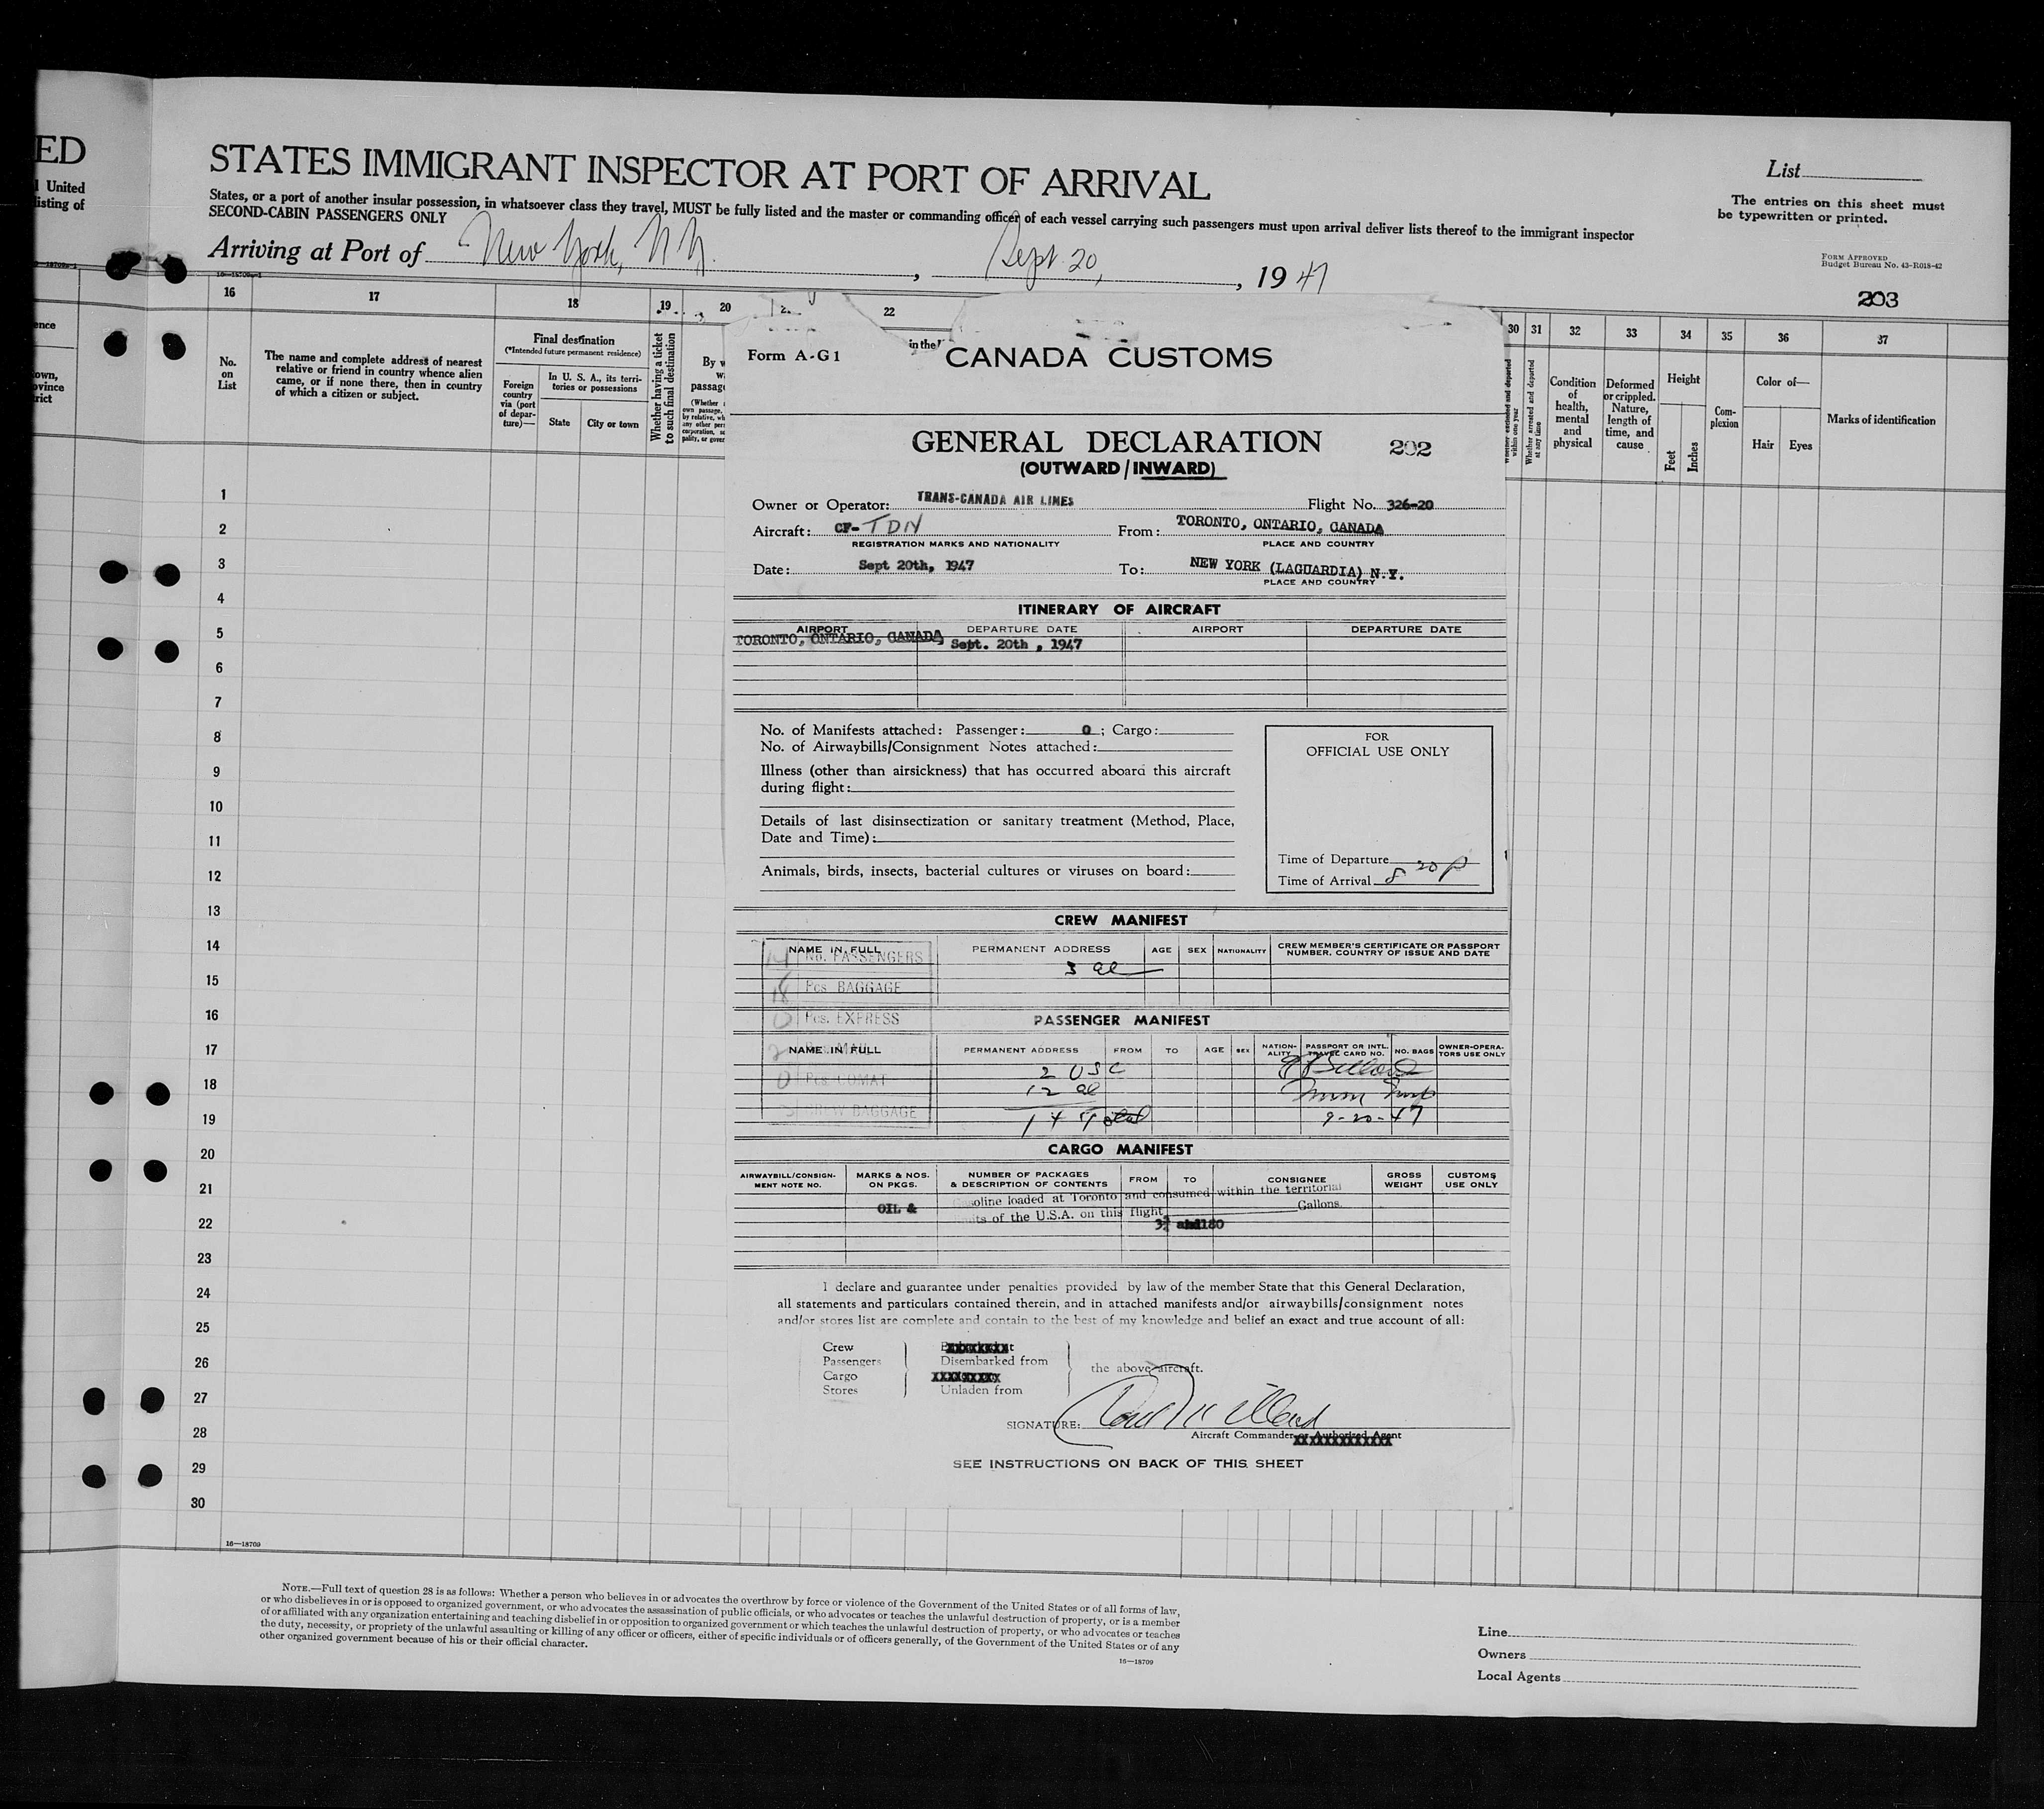 ED
l United
listing of
STATES IMMIGRANT INSPECTOR AT PORT OF ARRIVAL
States, or a port of another insular possession, in whatsoever class they travel, MUST be fully listed and the master or commanding officer of each vessel carrying such passengers must upon arrival deliver lists thereof to the immigrant inspector
SECOND-CABIN PASSENGERS ONLY
Arriving at Port of New York, N.Y. , Sept. 20, , 19 47
List
The entries on this sheet must
be typewritten or printed.
FORM APPROVED
Budget Bureau No. 43-R018-42
203
16 17 18 19 20 22 30 31 32 33 34 35 36 37
No.
on
List
The name and complete address of nearest
relative or friend in country whence alien
came, or if none there, then in country
of which a citizen or subject.
Final destination
(*Intended future permanent residence)
Foreign
country
via (port
of depar-
ture)—
In U. S. A., its terri-
tories or possessions
State City or town
Whether having a ticket
to such final destination
By w
passag
in the
Whether excluded and deported
within one year
Whether arrested and deported
at any time
Condition
of
health,
mental
and
physical
Deformed
or crippled.
Nature,
length of
time, and
cause
Height
Feet Inches
Com-
plexion
Color of—
Hair Eyes
Marks of identification
1
2
3
4
5
6
7
8
9
10
11
12
13
14
15
16
17
18
19
20
21
22
23
24
25
26
27
28
29
30
Form A-G1
CANADA CUSTOMS
GENERAL DECLARATION
202
(OUTWARD/INWARD)
Owner or Operator: TRANS-CANADA AIR LINES Flight No. 326-20
Aircraft: CF-TDN From: TORONTO, ONTARIO, CANADA
REGISTRATION MARKS AND NATIONALITY PLACE AND COUNTRY
Date: Sept 20th, 1947 To: NEW YORK (LAGUARDIA) N.Y.
PLACE AND COUNTRY
ITINERARY OF AIRCRAFT
AIRPORT DEPARTURE DATE AIRPORT DEPARTURE DATE
TORONTO, ONTARIO, CANADA Sept. 20th , 1947
No. of Manifests attached: Passenger: 0 ; Cargo:
No. of Airwaybills/Consignment Notes attached:
Illness (other than airsickness) that has occurred aboard this aircraft
during flight:
Details of last disinsectization or sanitary treatment (Method, Place,
Date and Time):
Animals, birds, insects, bacterial cultures or viruses on board:
FOR
OFFICIAL USE ONLY
Time of Departure
Time of Arrival 8 20 p
CREW MANIFEST
NAME IN FULL PERMANENT ADDRESS AGE SEX NATIONALITY CREW MEMBER'S CERTIFICATE OR PASSPORT
NUMBER, COUNTRY OF ISSUE AND DATE
14 No. PASSENGERS
3 al
18 Pcs BAGGAGE
0 Pcs. EXPRESS
PASSENGER MANIFEST
NAME IN FULL PERMANENT ADDRESS FROM TO AGE SEX NATION-
ALITY PASSPORT OR INTL.
TRAVEL CARD NO. NO. BAGS OWNER-OPERA-
TORS USE ONLY
2 USC
0 Pcs. COMAT
12 al
3 CREW BAGGAGE
14 Total 9-20-47
CARGO MANIFEST
AIRWAYBILL/CONSIGN-
MENT NOTE NO. MARKS & NOS.
ON PKGS. NUMBER OF PACKAGES
& DESCRIPTION OF CONTENTS FROM TO CONSIGNEE GROSS
WEIGHT CUSTOMS
USE ONLY
OIL & Gasoline loaded at Toronto and consumed within the territorial
limits of the U.S.A. on this flight Gallons.
I declare and guarantee under penalties provided by law of the member State that this General Declaration,
all statements and particulars contained therein, and in attached manifests and/or airwaybills/consignment notes
and/or stores list are complete and contain to the best of my knowledge and belief an exact and true account of all:
Crew
Passengers Disembarked from
Cargo
Stores Unladen from
the above aircraft.
SIGNATURE:
Aircraft Commander or Authorized Agent
SEE INSTRUCTIONS ON BACK OF THIS SHEET
16—18709
NOTE.—Full text of question 28 is as follows: Whether a person who believes in or advocates the overthrow by force or violence of the Government of the United States or of all forms of law,
or who disbelieves in or is opposed to organized government, or who advocates the assassination of public officials, or who advocates or teaches the unlawful destruction of property, or is a member
of or affiliated with any organization entertaining and teaching disbelief in or opposition to organized government or which teaches the unlawful destruction of property, or who advocates or teaches
the duty, necessity, or propriety of the unlawful assaulting or killing of any officer or officers, either of specific individuals or of officers generally, of the Government of the United States or of any
other organized government because of his or their official character.
16—18709
Line
Owners
Local Agents